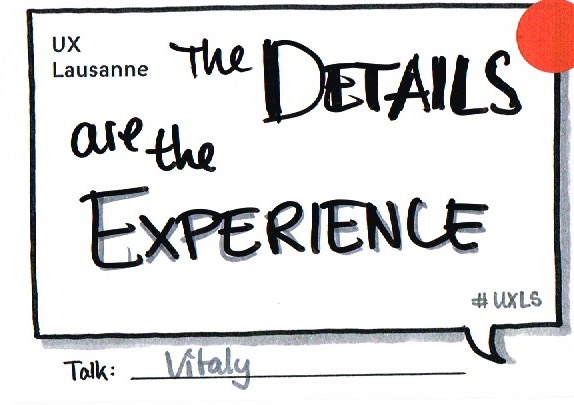 UX
Lausanne
The DETAILS
are the
EXPERIENCE
#UXLS
Talk: Vitaly